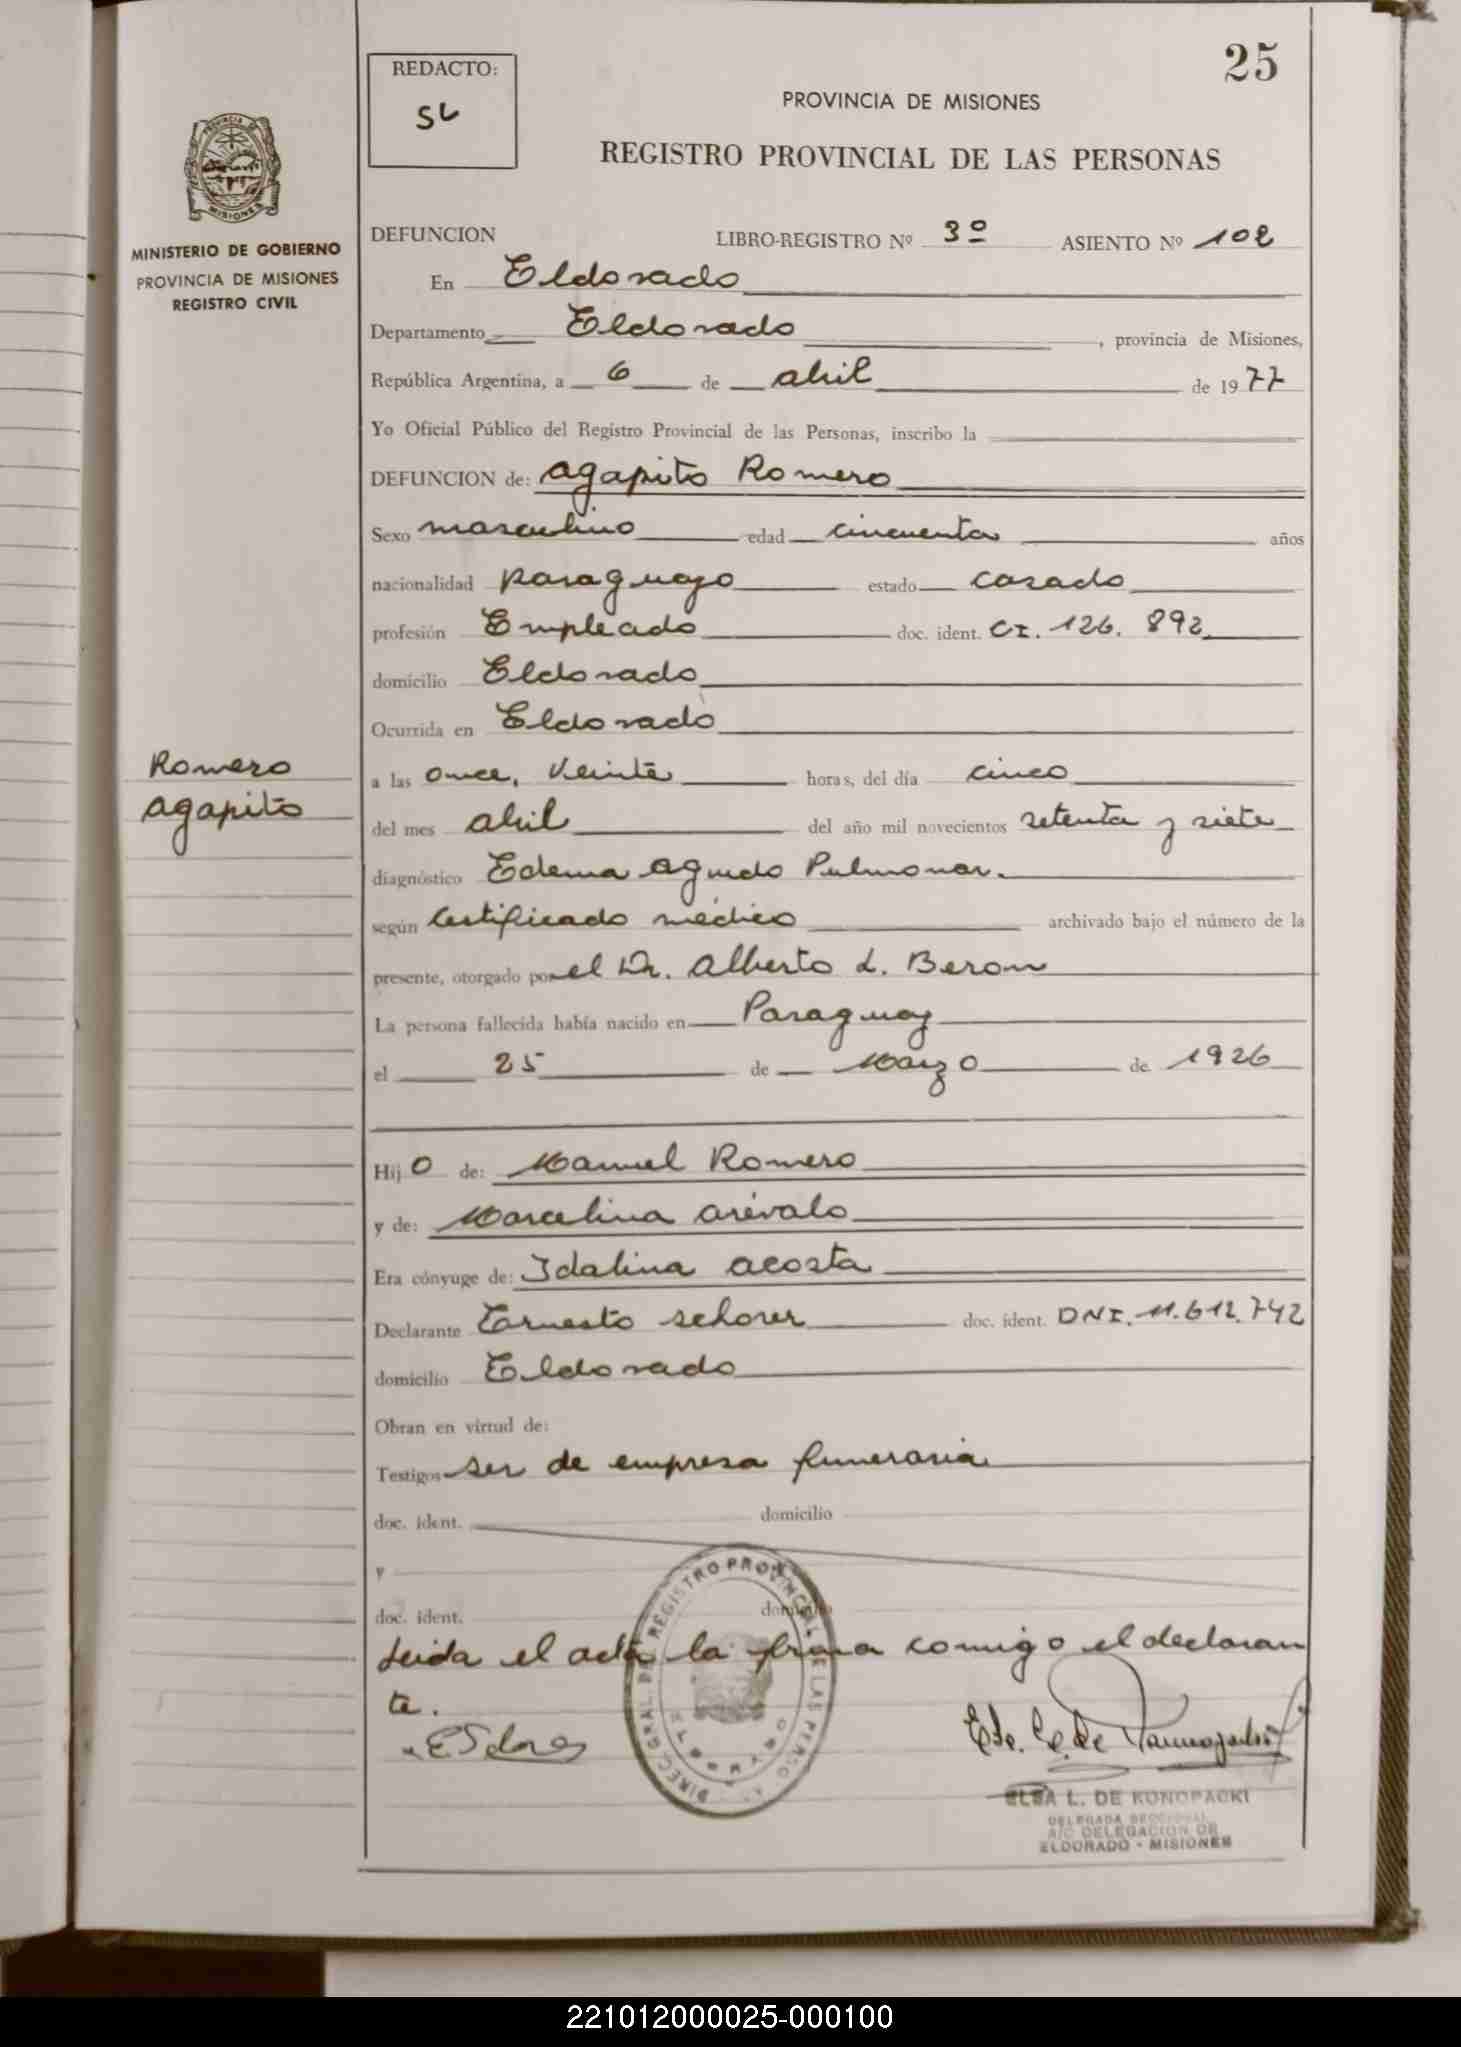 25
REDACTO:
SL
PROVINCIA DE MISIONES
REGISTRO PROVINCIAL DE LAS PERSONAS
MINISTERIO DE GOBIERNO
PROVINCIA DE MISIONES
REGISTRO CIVIL
DEFUNCION LIBRO-REGISTRO Nº 3º ASIENTO Nº 102
En Eldorado
Departamento Eldorado, provincia de Misiones,
República Argentina, a 6 de abril de 1977
Yo Oficial Público del Registro Provincial de las Personas, inscribo la
DEFUNCION de: Agapito Romero
Sexo masculino edad cincuenta años
nacionalidad Paraguayo estado casado
profesión Empleado doc. ident. CI. 126.892
domicilio Eldorado
Ocurrida en Eldorado
Romero
Agapito
a las once, veinte horas, del día cinco
del mes abril del año mil novecientos setenta y siete
diagnóstico Edema agudo Pulmonar.
según Certificado médico archivado bajo el número de la
presente, otorgado por el Dr. Alberto L. Beron
La persona fallecida había nacido en Paraguay
el 25 de Marzo de 1926
Hijo de: Manuel Romero
y de: Marcelina Arévalo
Era cónyuge de: Idalina Acosta
Declarante Ernesto Schorer doc. ident. DNI. 11.612.742
domicilio Eldorado
Obran en virtud de:
Testigos ser de empresa funeraria
doc. ident. domicilio
y
doc. ident. domicilio
Leida el acta la firma comigo el declaran
te.
DIREC. GRAL. DEL REGISTRO PROVINCIAL DE LAS PERSO
ELDORADO
ELSA L. DE KONOPACKI
DELEGADA SECCIONAL
A/C DELEGACION DE
ELDORADO - MISIONES
221012000025-000100